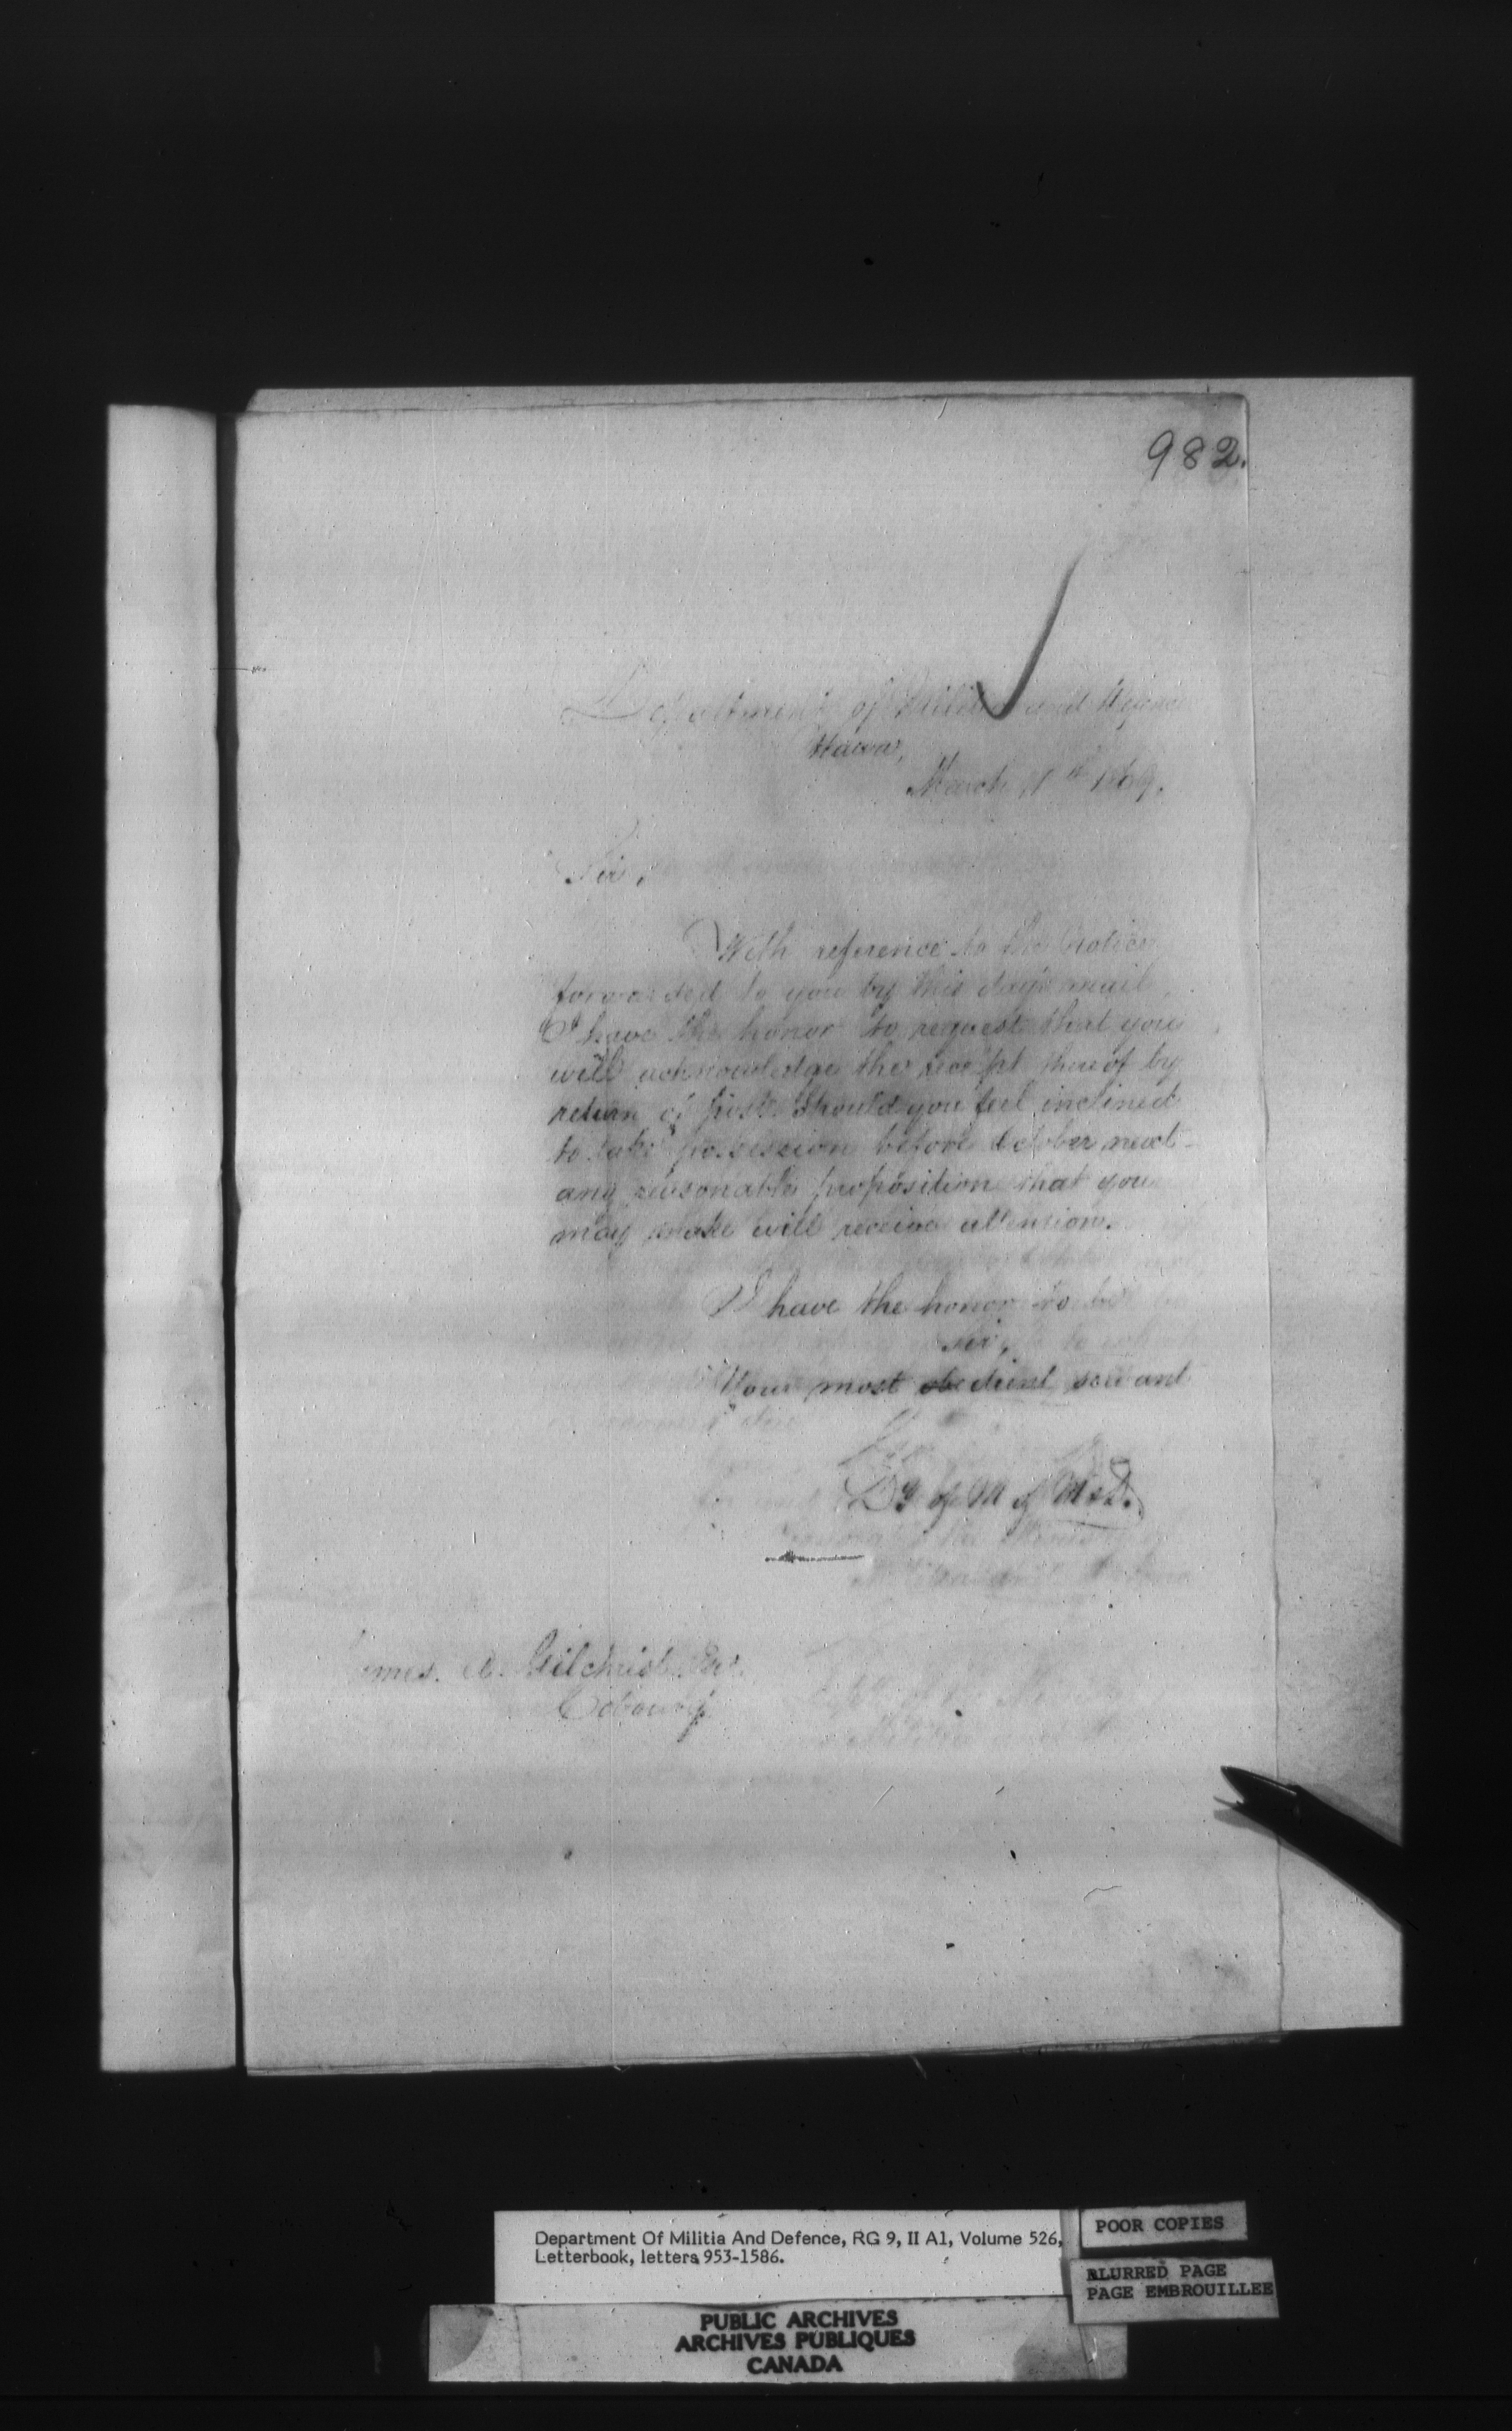 982.
Department of Militia and Defence
Ottawa,
March 1869.
Sir,
With reference to the Notice
forwarded to you by this day's mail
I have the honor to request that you
will acknowledge the receipt thereof by
return of post. Should you feel inclined
to take possession before October next
any reasonable proposition that you
may make will receive attention.
I have the honor to be
Sir,
Your most obedient servant
Dy of M of M & D.
A. Gilchrist Esqr.
Cobourg
Department Of Militia And Defence, RG 9, II A1, Volume 526,
Letterbook, letters 953-1586.
POOR COPIES
BLURRED PAGE
PAGE EMBROUILLEE
PUBLIC ARCHIVES
ARCHIVES PUBLIQUES
CANADA